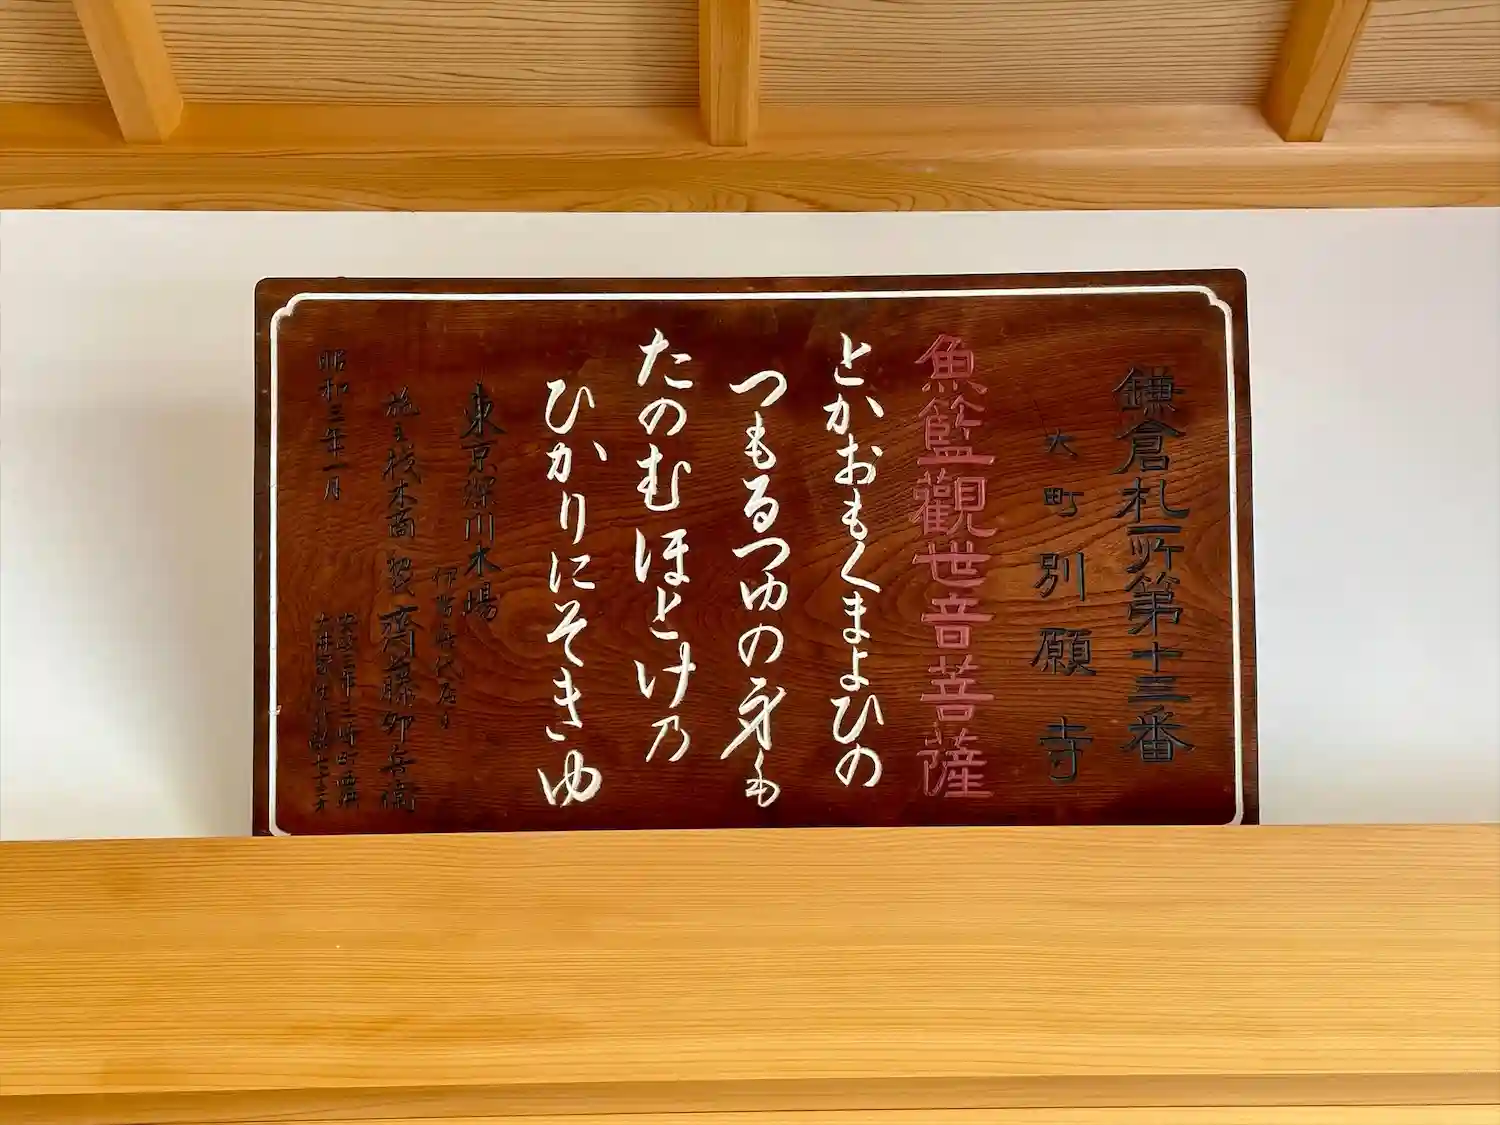 鎌倉札所第十三番
大町別願寺
魚籃觀世音菩薩
とかおもくまよひの
つもるつゆの身も
たのむほとけ乃
ひかりにそきゆ
東京深川木場
施主 材木商 齋藤卯兵衛
昭和三年一月